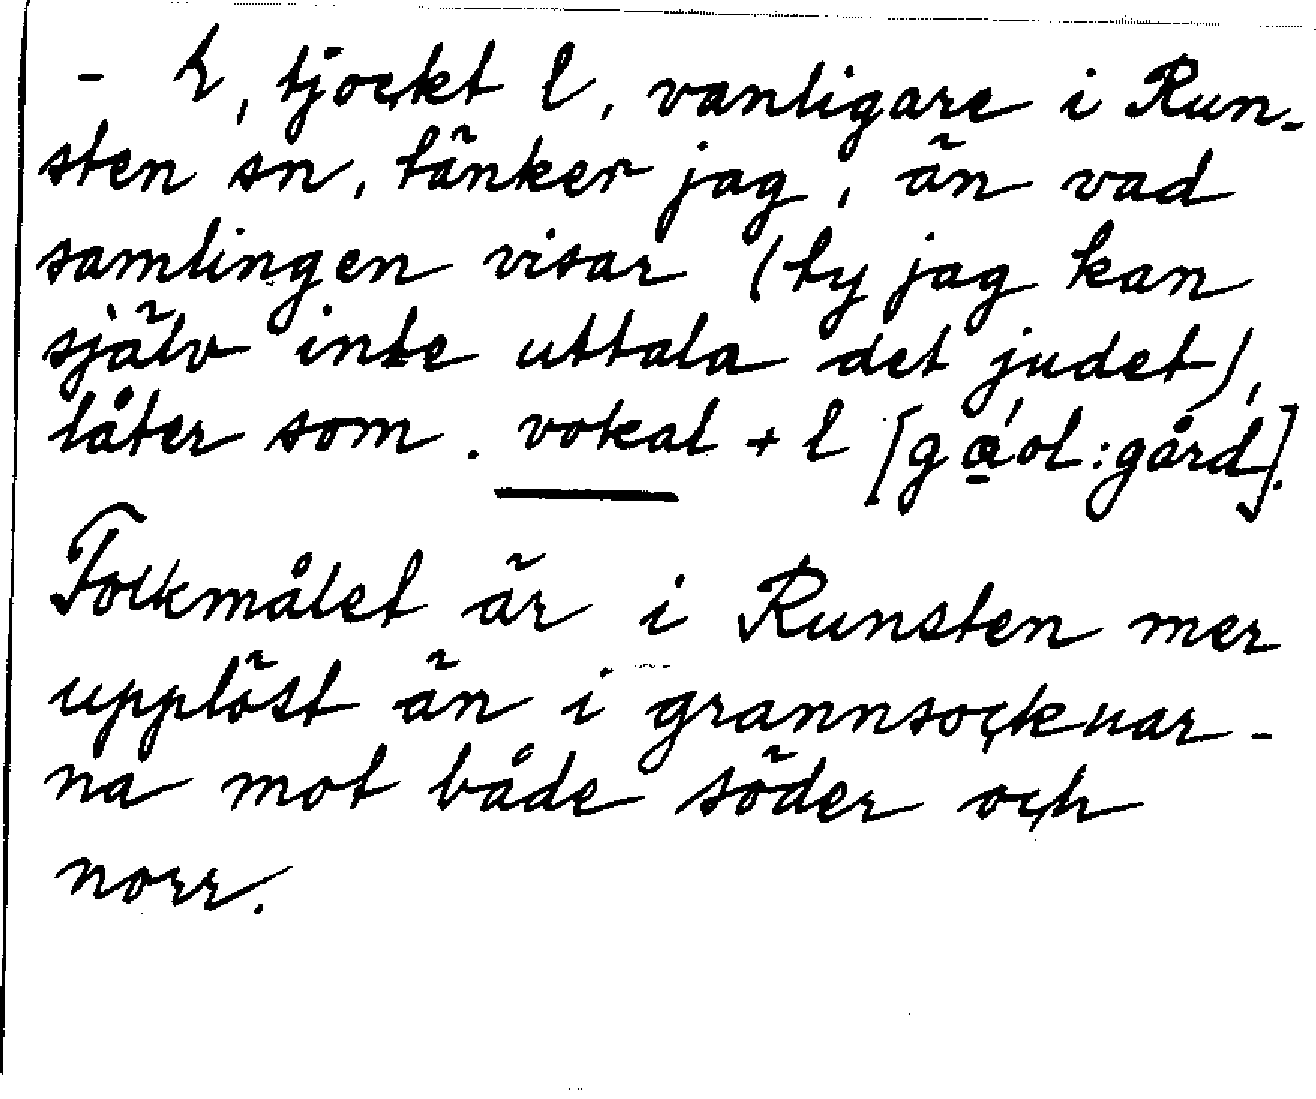 - λ, tjockt l, vanligare i Run-
sten sn, tänker jag, än vad
samlingen visar (ty jag kan
själv inte uttala det judet),
låter som. vokal + l [gа́ol: gård].
Folkmålet är i Runsten mer
upplöst än i grannsocknar-
na mot både söder och
norr.